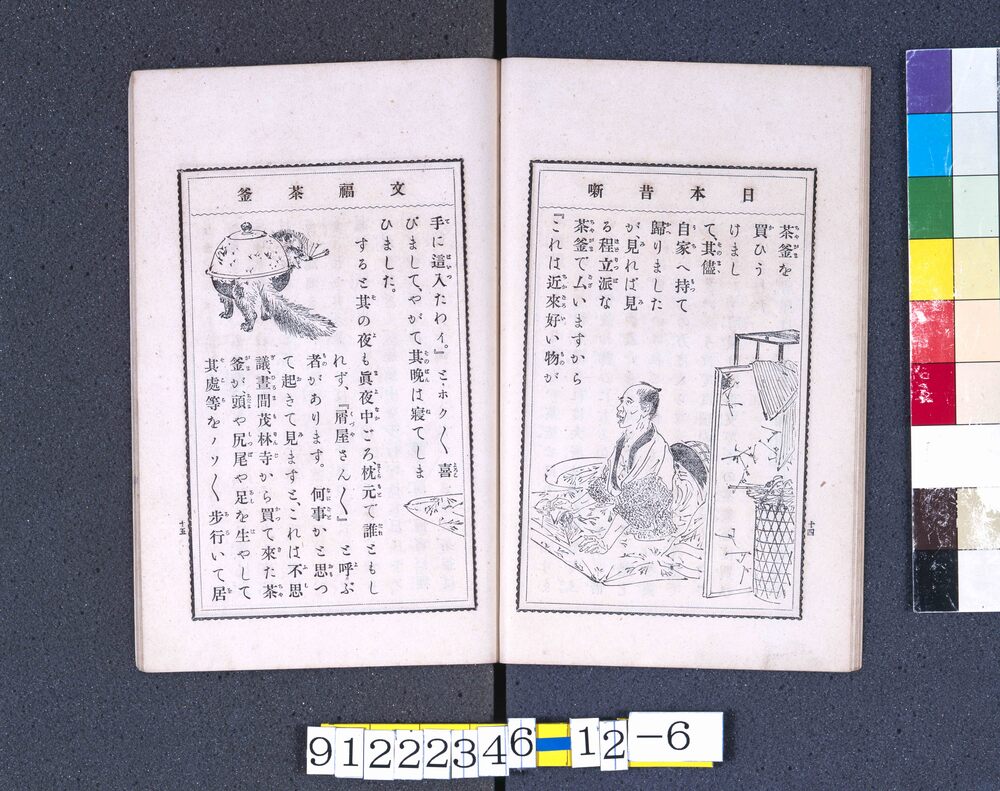 日本昔噺
茶釜を
買ひう
けまし
て、其儘
自家へ持て
歸りました
が、見れば見
る程立派な
茶釜で厶いますから
『これは近來好い物が
十四
文福茶釜
手に這入たわィ。』と、ホク〱喜
びまして、やがて其晩は寢てしま
ひました。
すると其の夜も眞夜中ごろ、枕元で誰ともし
れず、『屑屋さん〱』と呼ぶ
者があります。何事かと思つ
て起きて見ますと、これは不思
議、晝間茂林寺から買て來た茶
釜が、頭や尻尾や足を生やして
其處等をノソ〱歩行いて居
十五
91222346=12-6